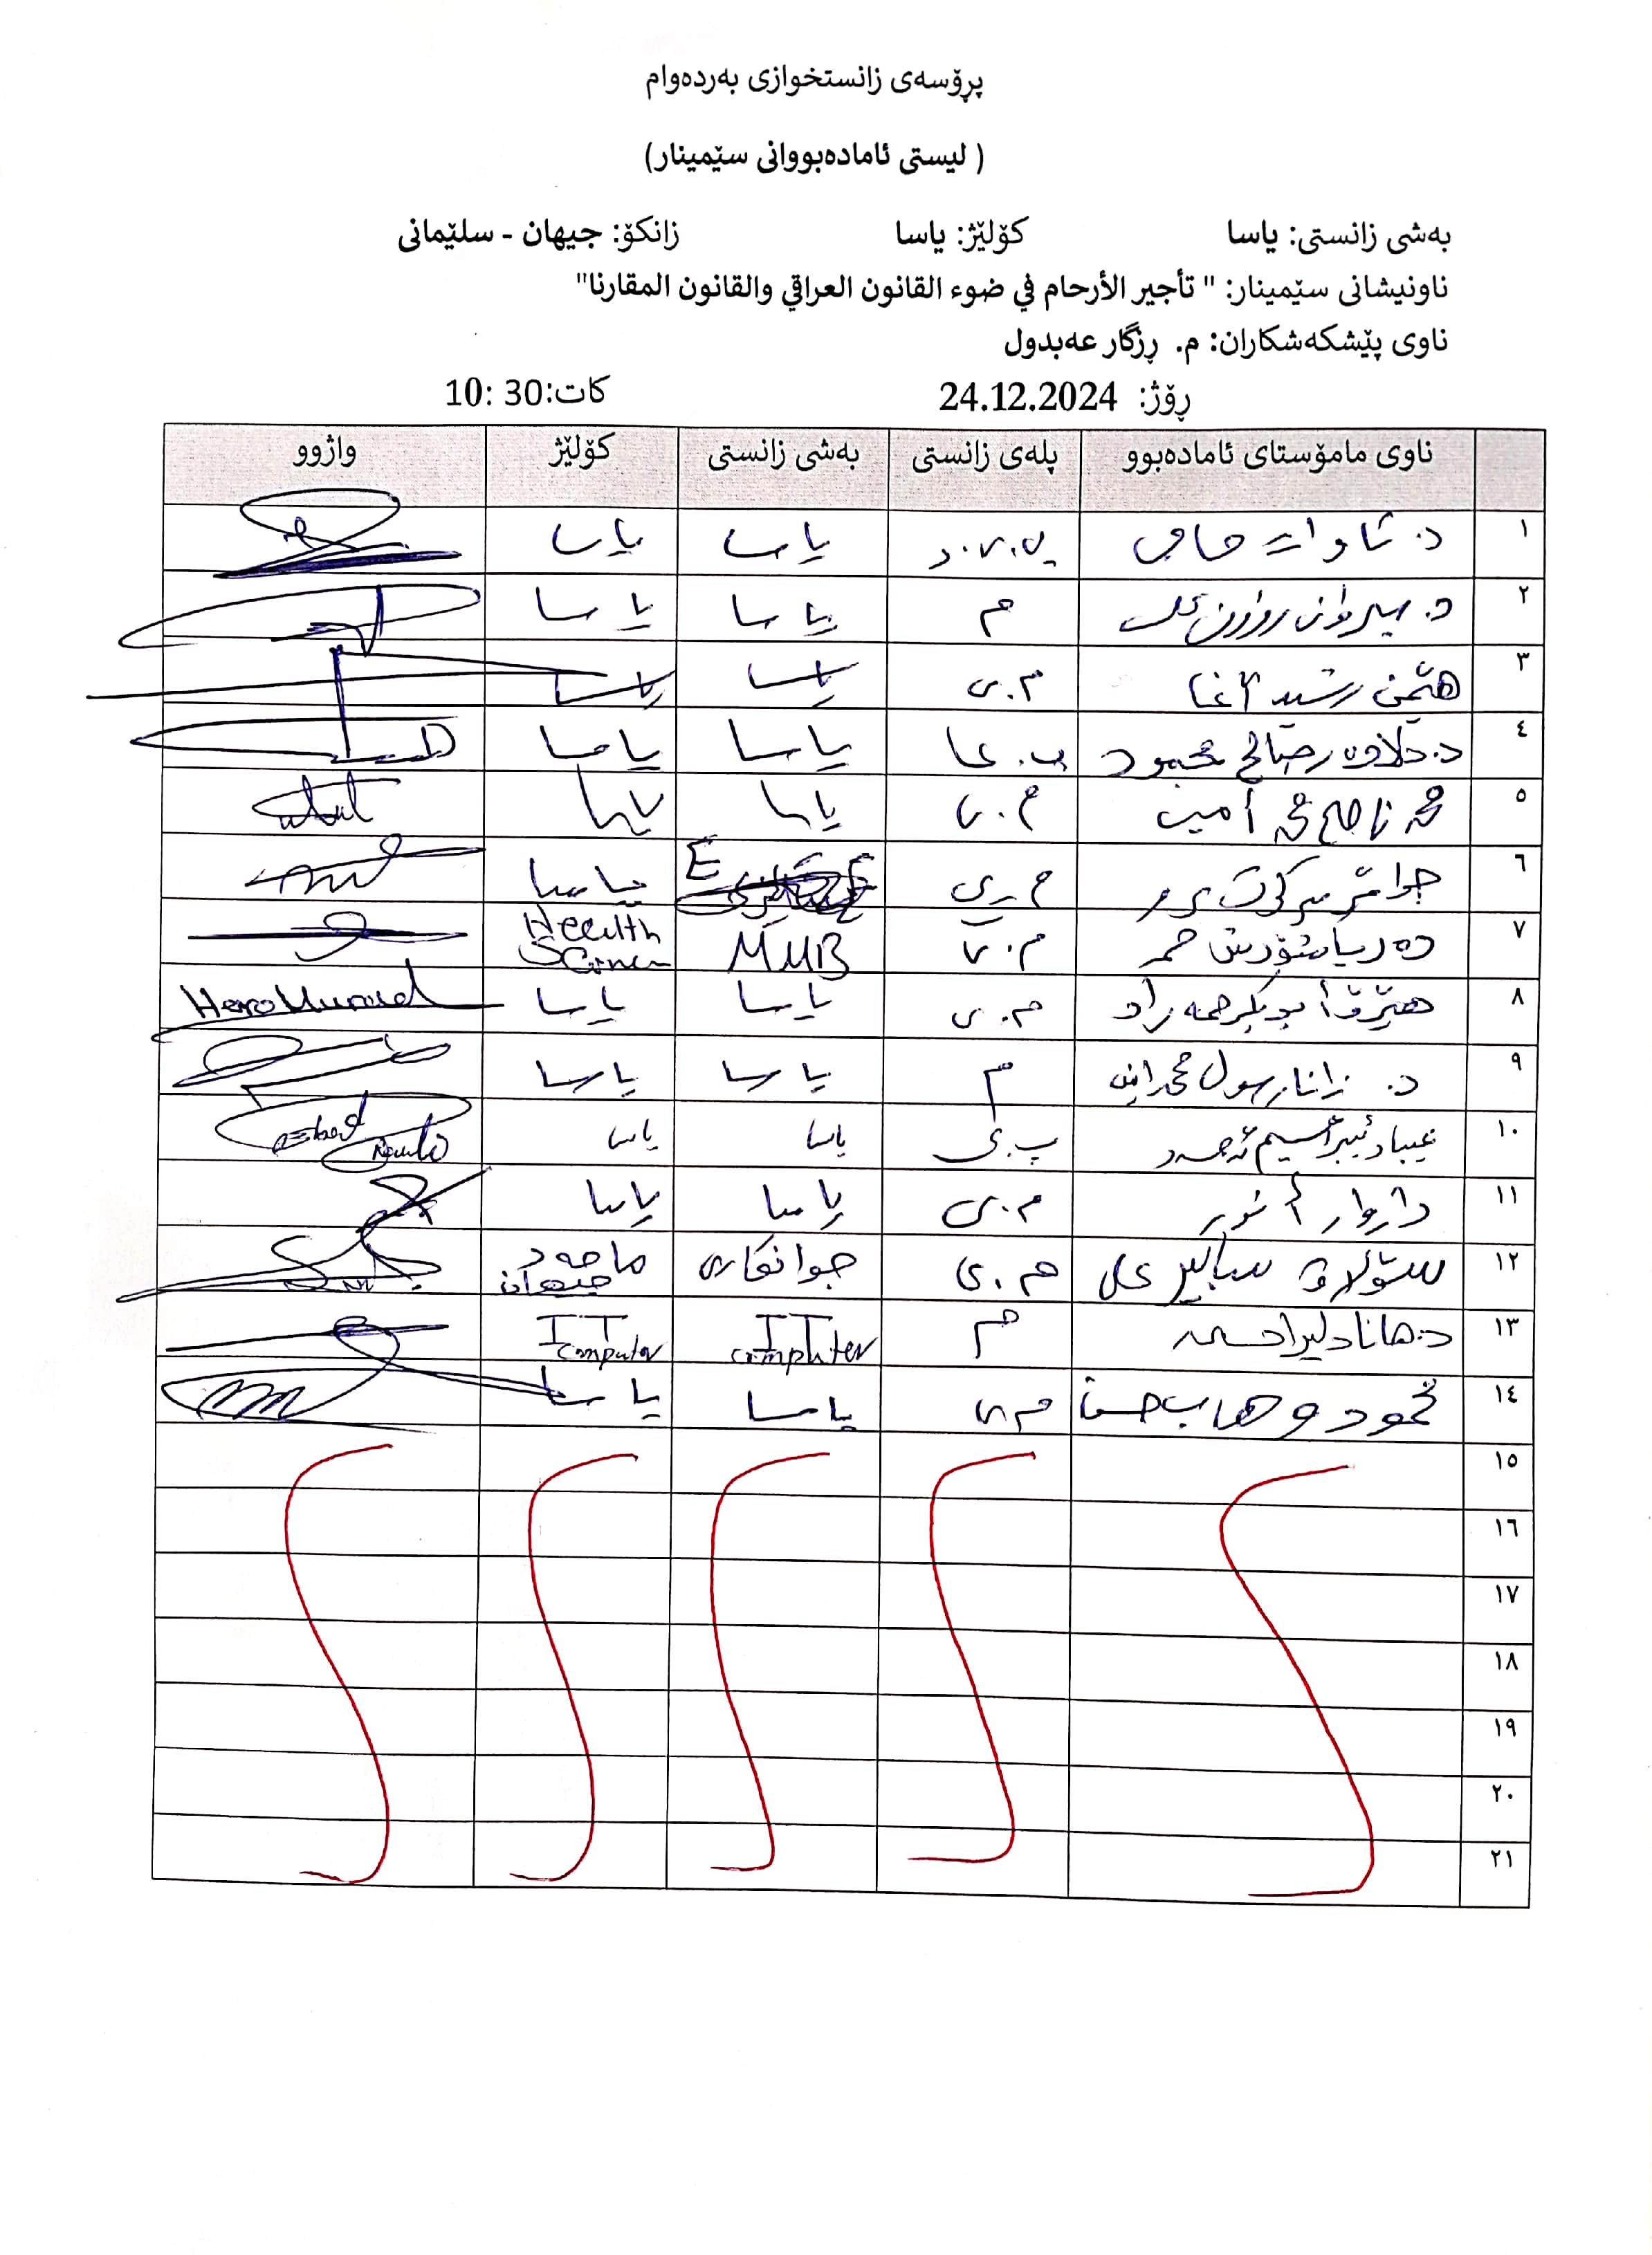 پڕۆسەی زانستخوازی بەردەوام
( لیستی ئامادەبووانی سێمینار)
بەشی زانستی: یاسا کۆلێژ: یاسا زانکۆ: جیهان - سلێمانی
ناونیشانی سێمینار: " تأجير الأرحام في ضوء القانون العراقي والقانون المقارنا"
ناوی پێشکەشکاران: م. ڕزگار عەبدول
ڕۆژ: 24.12.2024 کات:30 :10
ناوی مامۆستای ئامادەبوو پلەی زانستی بەشی زانستی کۆلێژ واژوو
١ د. یاسا یاسا
٢ د. م یاسا یاسا
٣ هێمن رشید آغا م.ی یاسا یاسا
٤ د. صالح محمود یاسا یاسا
٥ محمد ناصح محمد أمین م.ی یاسا یاسا
٦ م.ی E یاسا
٧ دەریا شۆڕش حمە م.ی MMB Health Science
٨ هێرۆ أبوبکر حمە م.ی یاسا یاسا
٩ د. زانا رسول محمد امین م یاسا یاسا
١٠ پ.ی یاسا یاسا
١١ أنور م.ی یاسا یاسا
١٢ علی م.ی جوانکاری جیهان
١٣ د. هانا دلیر م IT computer IT computer
١٤ محمود وهاب حسن م.ی یاسا یاسا
١٥
١٦
١٧
١٨
١٩
٢٠
٢١